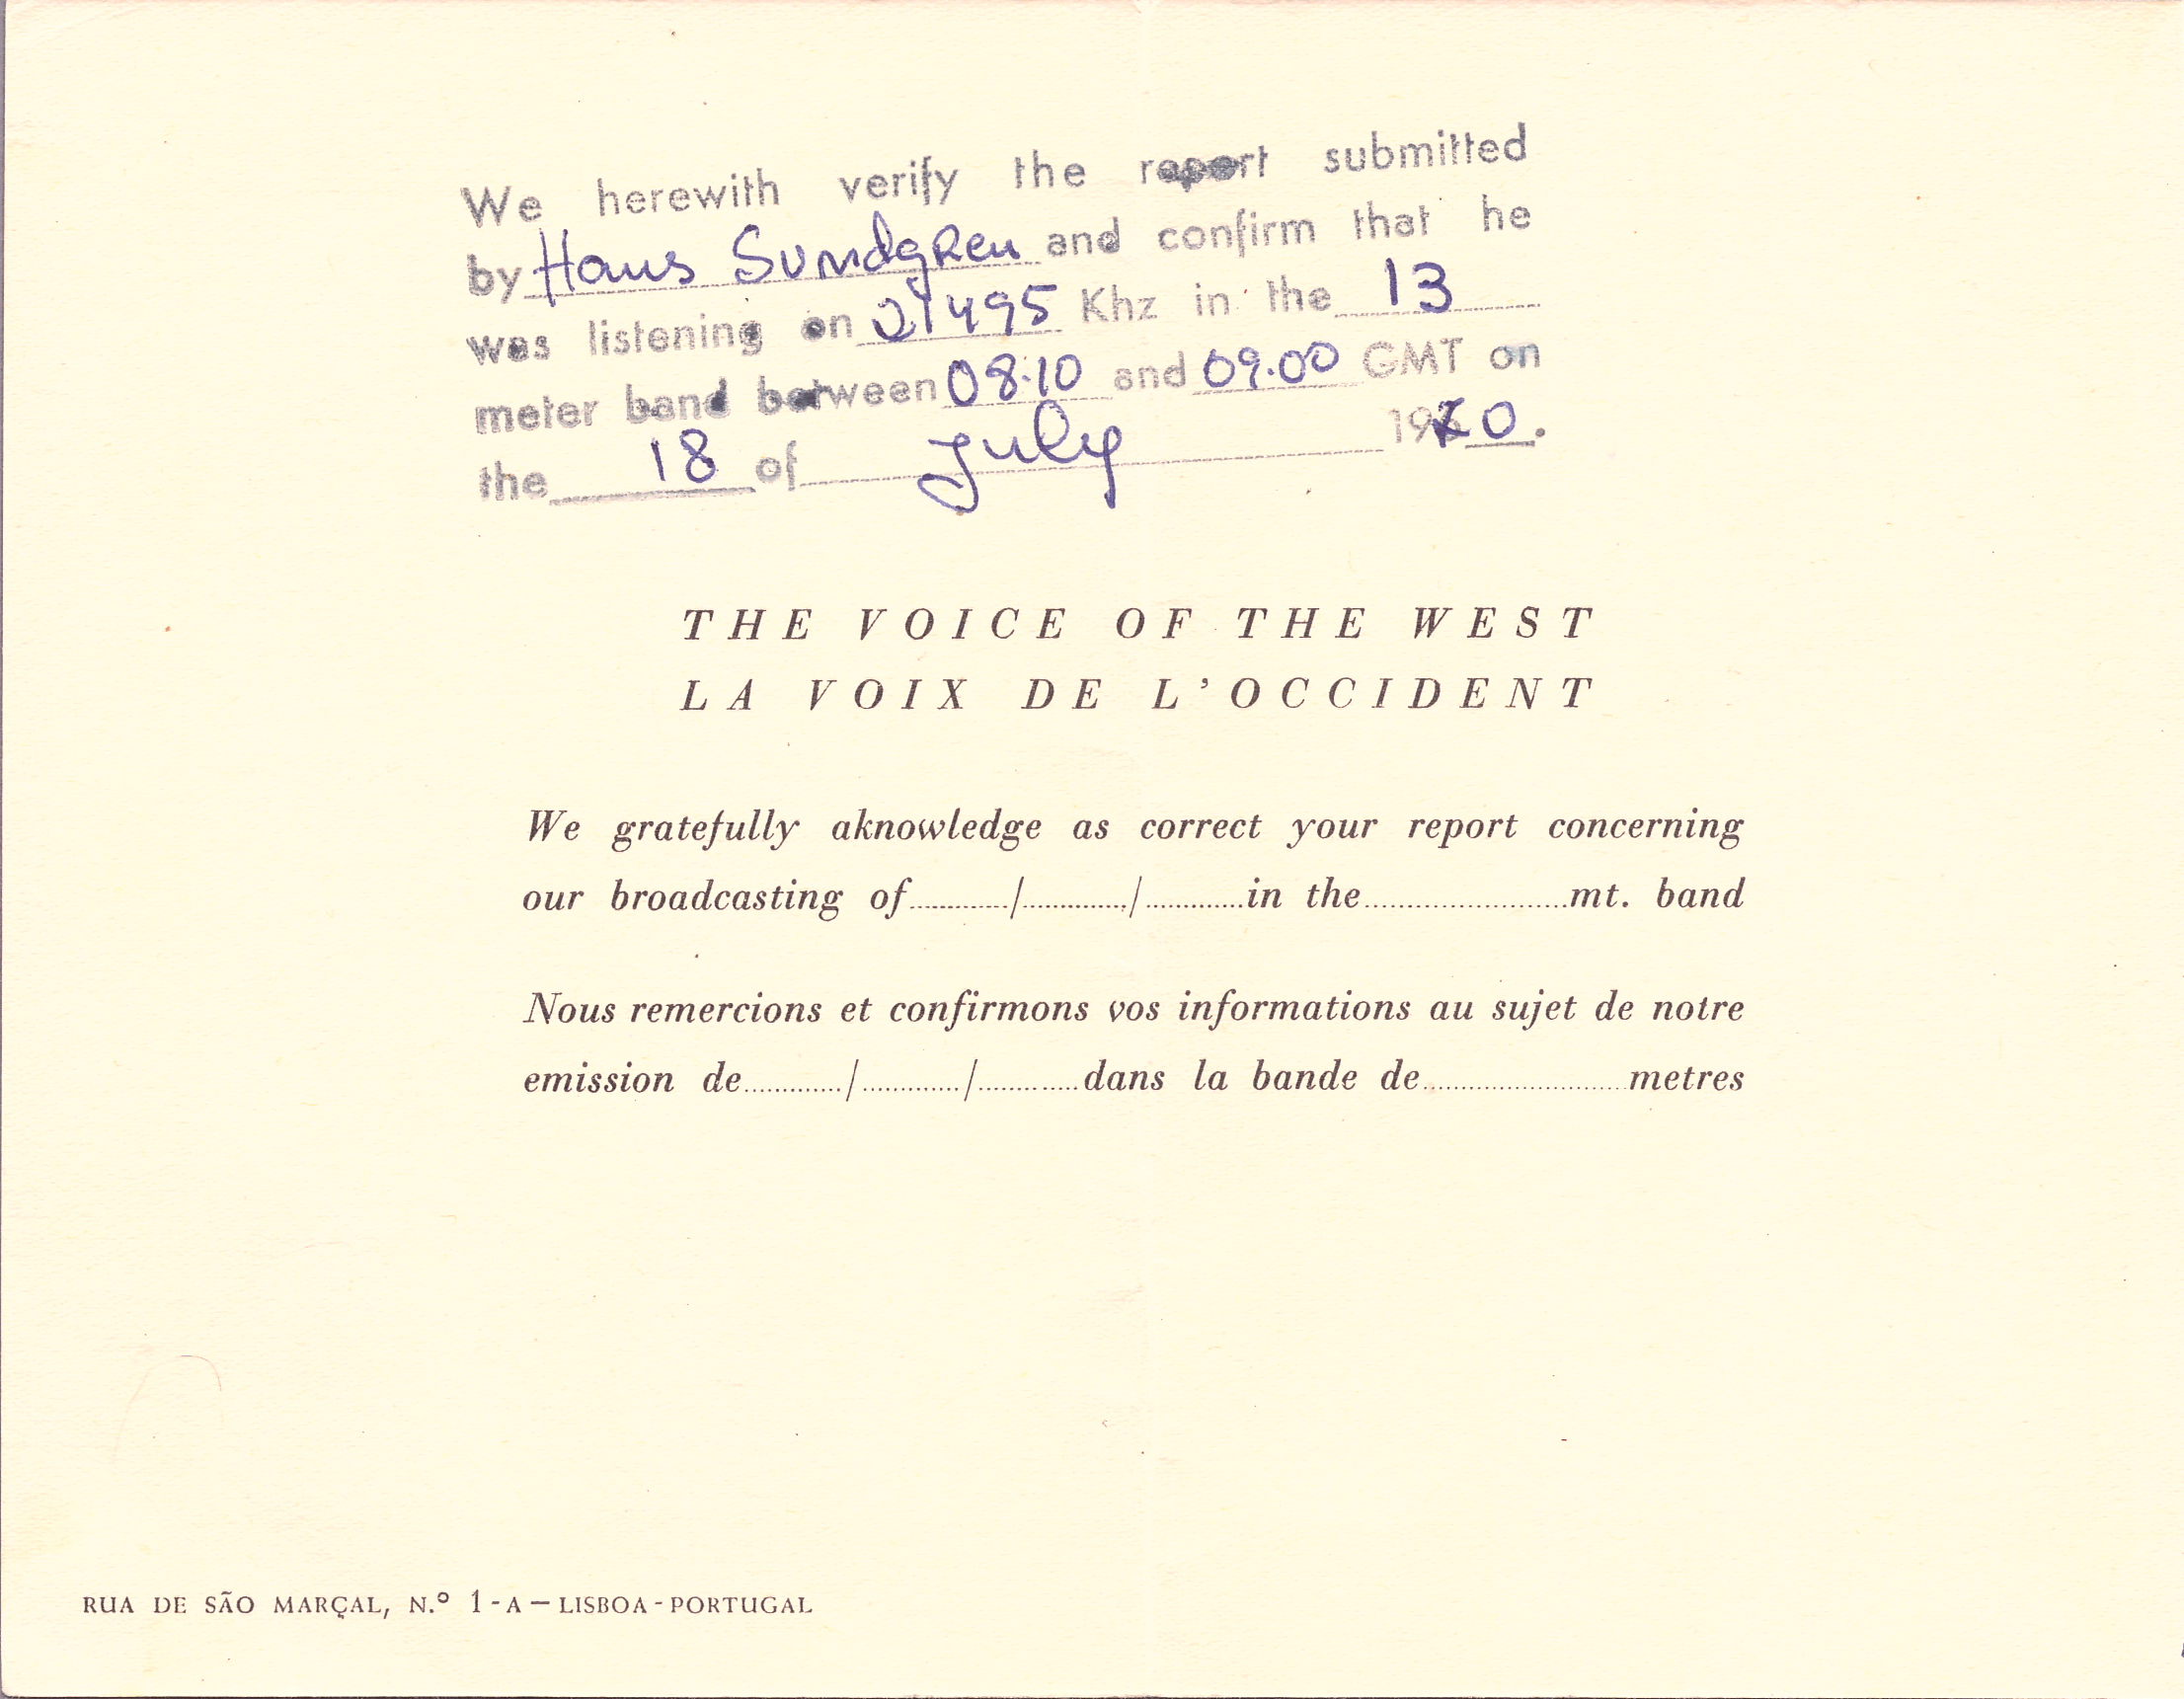 We herewith verify the report submitted
by Hans Sundgren and confirm that he
was listening on 21495 Khz in the 13
meter band between 08.10 and 09.00 GMT on
the 18 of July 1970.
THE VOICE OF THE WEST
LA VOIX DE L'OCCIDENT
We gratefully aknowledge as correct your report concerning
our broadcasting of............/............./.............in the.........................mt. band
Nous remercions et confirmons vos informations au sujet de notre
emission de............/............/............dans la bande de.........................metres
RUA DE SÃO MARÇAL, N.º 1-A — LISBOA - PORTUGAL